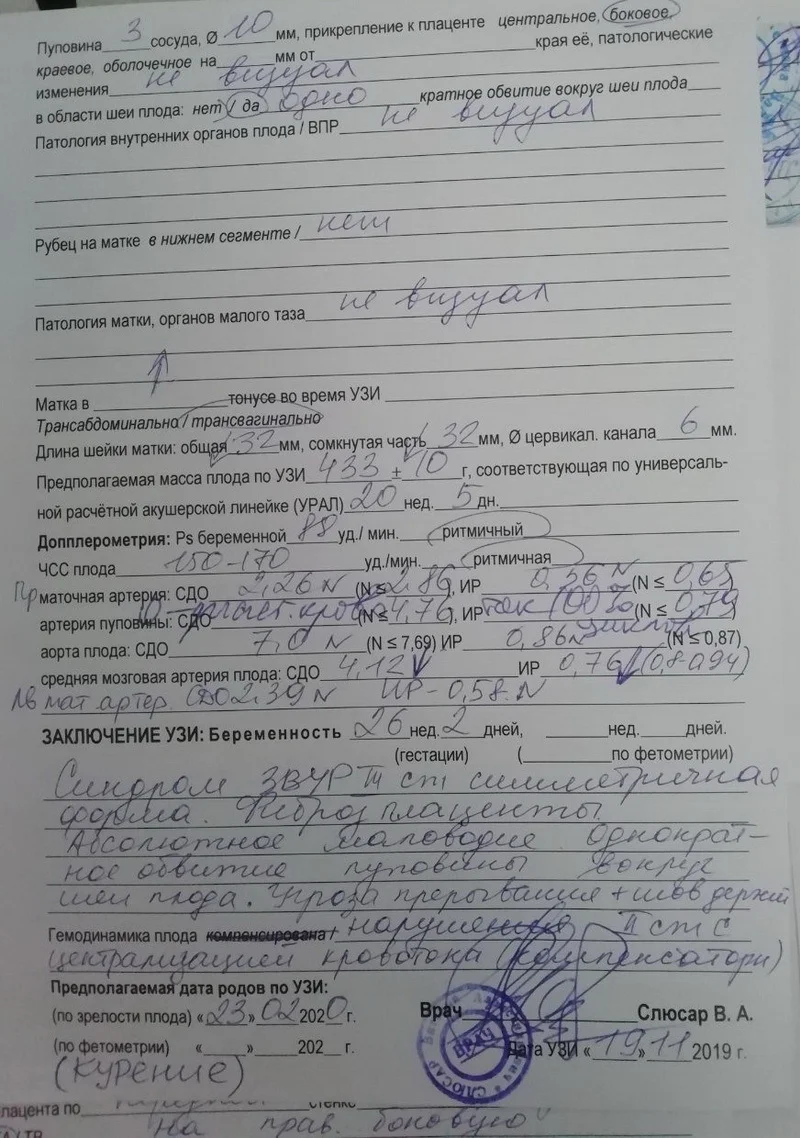 Пуповина 3 сосуда, Ø 10 мм, прикрепление к плаценте центральное, боковое,
краевое, оболочечное на ___ мм от ___ края её, патологические
изменения не визуал
в области шеи плода: нет / да одно кратное обвитие вокруг шеи плода
Патология внутренних органов плода / ВПР не визуал
Рубец на матке в нижнем сегменте / нет
Патология матки, органов малого таза не визуал
Матка в ↑ тонусе во время УЗИ
Трансабдоминально / трансвагинально
Длина шейки матки: общая 32 мм, сомкнутая часть 32 мм, Ø цервикал. канала 6 мм.
Предполагаемая масса плода по УЗИ 433 ± 10 г, соответствующая по универсаль-
ной расчётной акушерской линейке (УРАЛ) 20 нед. 5 дн.
Допплерометрия: Ps беременной 88 уд./ мин. ритмичный
ЧСС плода 150-170 уд./мин. ритмичная
Пр маточная артерия: СДО 2,26 N (N ≤ 2,86), ИР 0,56 N (N ≤ 0,65
артерия пуповины: СДО 10 кровоток (N ≤ 4,76), ИР 100% (N ≤ 0,79
циклов
аорта плода: СДО 7,0 N (N ≤ 7,69) ИР 0,86 N (N ≤ 0,87)
средняя мозговая артерия плода: СДО 4,12 ↓ ИР 0,76 ↓ (0,8-0,94)
Лв мат артер. СДО 2,39 N ИР - 0,58 N
ЗАКЛЮЧЕНИЕ УЗИ: Беременность 26 нед. 2 дней, ___ нед. ___ дней.
(гестации) ( ___ по фетометрии)
Синдром ЗВУР III ст симметричная
форма. Фиброз плаценты.
Абсолютное маловодие. Однократ-
ное обвитие пуповины вокруг
шеи плода. Угроза прерывания + шов держит
Гемодинамика плода компенсирована / нарушения II ст с
централизацией кровотока (компенсаторн)
Предполагаемая дата родов по УЗИ:
(по зрелости плода) « 23 » 02 2020 г.
Врач Слюсар В. А.
(по фетометрии) « ___ » ___ 202 __ г.
Дата УЗИ « 19 » 11 2019 г.
ВРАЧ
СЛЮСАР
(КУРЕНИЕ)
лацента по
на прав. боковую